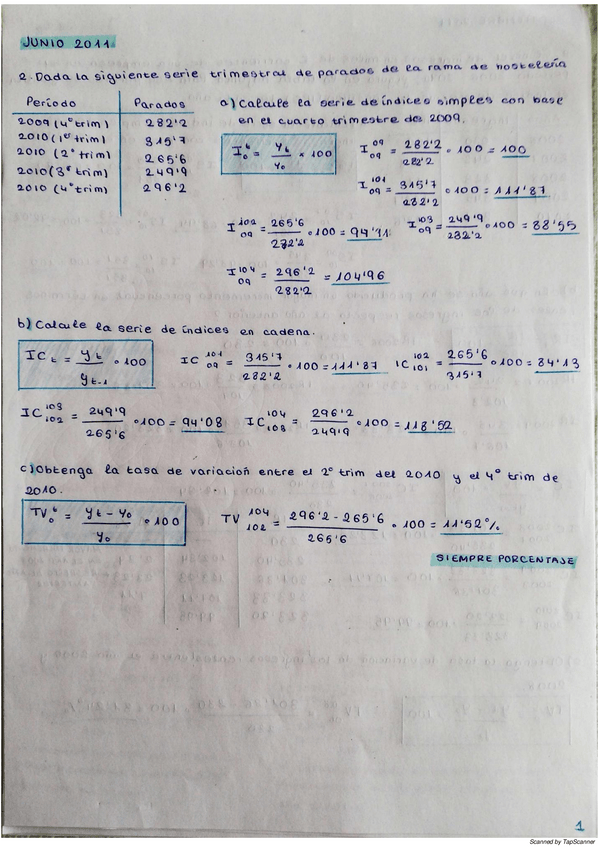 JUNIO 2011
2. Dada la siguiente serie trimestral de parados de la rama de hostelería
Período Parados
2009 (4º trim) 282'2
2010 (1er trim) 315'7
2010 (2º trim) 265'6
2010 (3er trim) 249'9
2010 (4º trim) 296'2
a) Calcule la serie de índices simples con base
en el cuarto trimestre de 2009.
I₀ᵗ = yₜ / y₀ × 100
I 09/09 = 282'2 / 282'2 · 100 = 100
I 101/09 = 315'7 / 282'2 · 100 = 111'87
I 102/09 = 265'6 / 282'2 · 100 = 94'11
I 103/09 = 249'9 / 282'2 · 100 = 88'55
I 104/09 = 296'2 / 282'2 = 104'96
b) Calcule la serie de índices en cadena.
ICₜ = yₜ / yₜ₋₁ · 100
IC 101/09 = 315'7 / 282'2 · 100 = 111'87
IC 102/101 = 265'6 / 315'7 · 100 = 84'13
IC 103/102 = 249'9 / 265'6 · 100 = 94'08
IC 104/103 = 296'2 / 249'9 · 100 = 118'52
c) Obtenga la tasa de variación entre el 2º trim del 2010 y el 4º trim de
2010.
TV₀ᵗ = yₜ - y₀ / y₀ · 100
TV 104/102 = 296'2 - 265'6 / 265'6 · 100 = 11'52%
SIEMPRE PORCENTAJE
1
Scanned by TapScanner